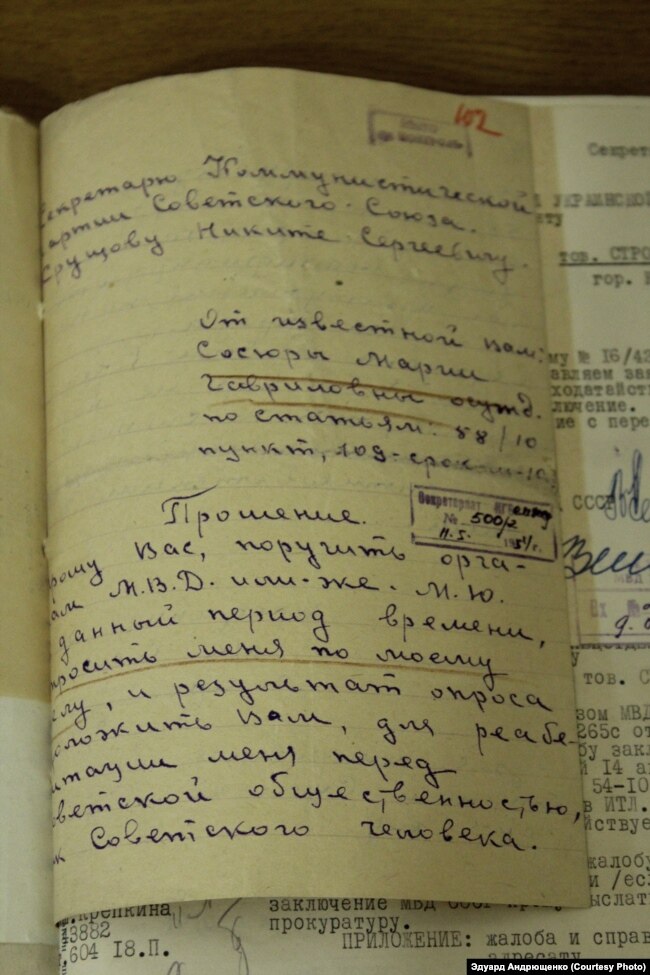 102
на контроль
Секретарю Коммунистической
Партии Советского Союза.
Хрущову Никите Сергеевичу.
От известной вам:
Сосюры Марии
Гавриловны осужд.
по статьям: 58/10
пункт, 109-срок
Прошение.
Секретариат
№ 500/2
11.5. 1954 г.
Прошу Вас, поручить орга-
нам М.В.Д. или-же. М.Ю.
данный период времени,
опросить меня по моему
делу, и результат опроса
доложить Вам, для реабе-
литации меня перед
Советской общественностью,
как Советского человека.
Секрет
УКРАИНСКОЙ
ту
тов. СТРО
гор. К
му № 16/42
вляем зая
ходатайств
лючение.
ие с пере
СССР
МВД
Вх №
тов. С
зом МВД
265с от
бу закл
й 14 ап
54-10
в ИТЛ.
йствуе
жалобу
и /есл
слать
заключение МВД
прокуратуру.
Крепкина
3882
604 18.П.
ПРИЛОЖЕНИЕ: жалоба и справ
адресату
Эдуард Андрющенко (Courtesy Photo)